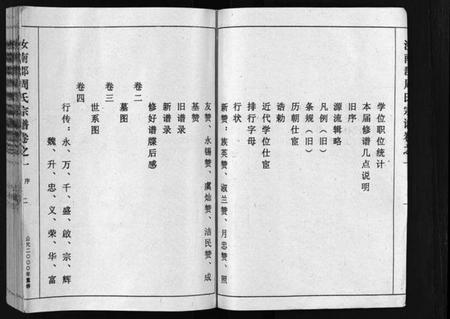 汝南郡周氏宗谱卷之一
学位职位统计
本届修谱几点说明
旧序
源流辑略
凡例（旧）
条规（旧）
历朝仕宦
诰勅
近代学位仕宦
排行字母
行状
新赞：族英赞、淑兰赞、月忠赞、照
友赞、永锡赞、虞灿赞、洁民赞、成
基赞
旧谱录
新谱录
修好谱牒后感
卷二
墓图
卷三
世系图
卷四
行传：永、万、千、盛、啟、宗、辉
魏、升、忠、义、荣、华、富
汝南郡周氏宗谱卷之一
序
二
公元二〇〇〇年重修